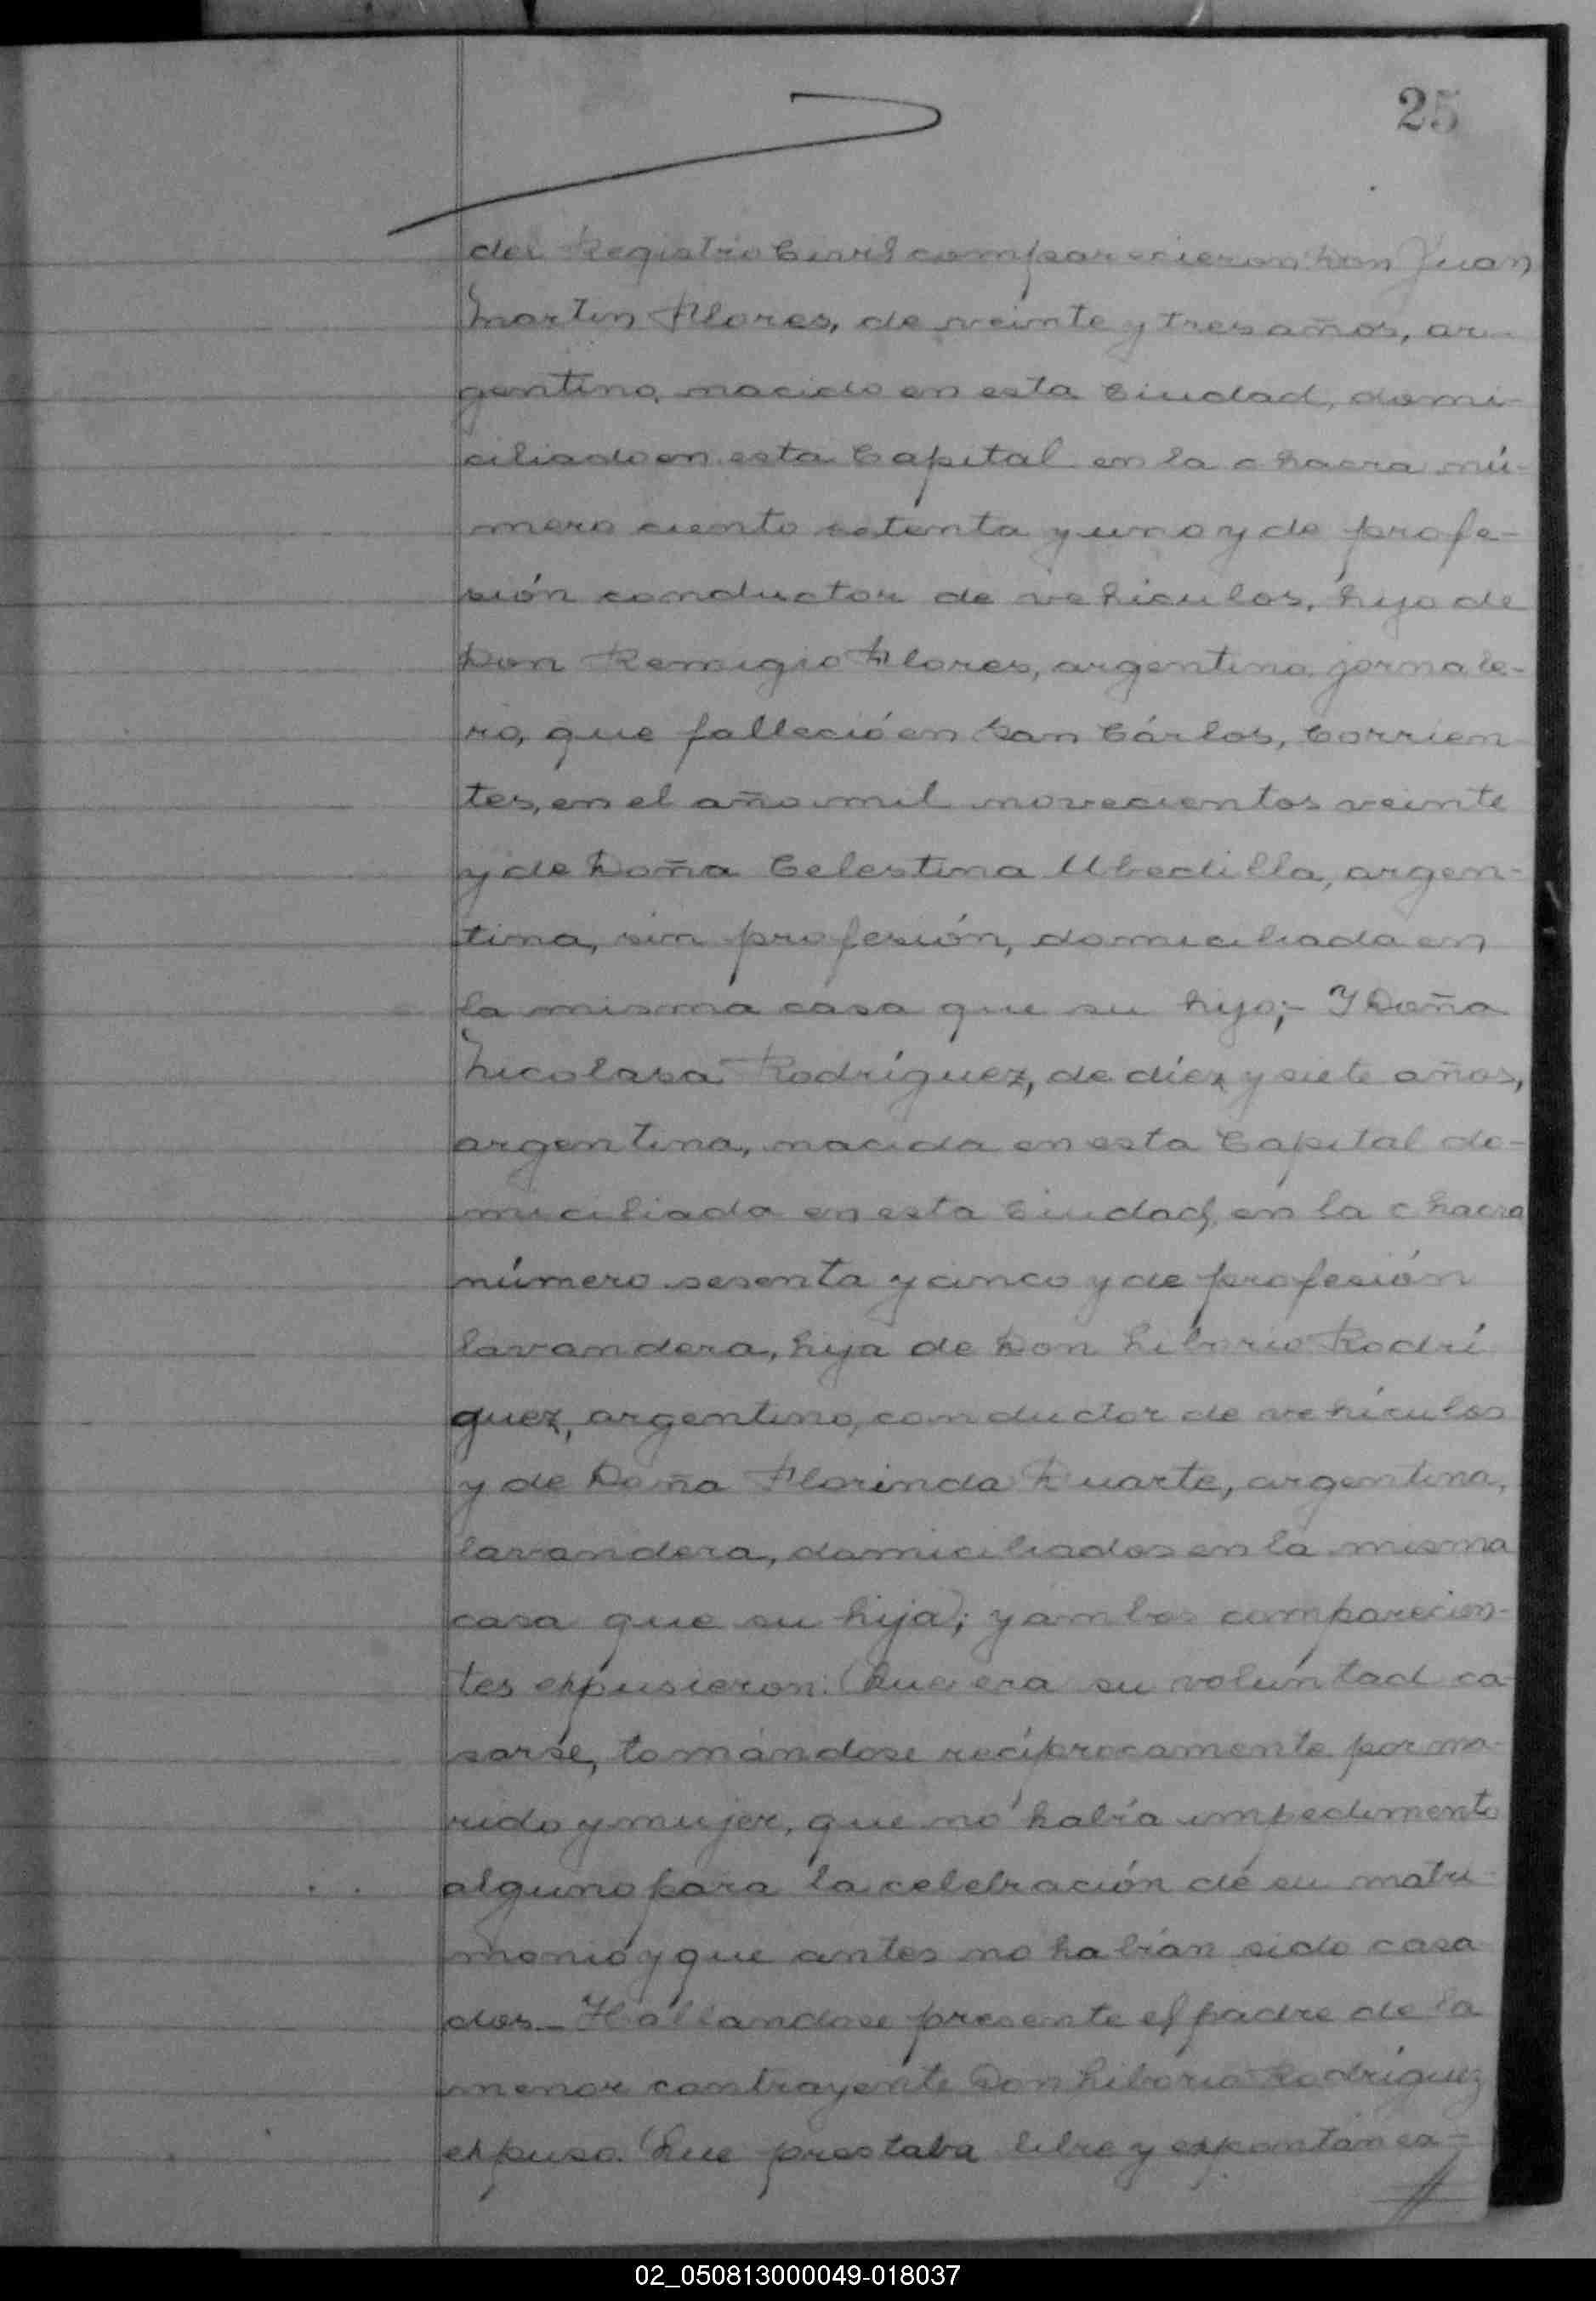 25
del Registro Civil comparecieron Don Juan
Martin Flores, de veinte y tres años, ar-
gentino, nacido en esta Ciudad, domi-
ciliado en esta Capital en la chacra nú-
mero ciento setenta y uno y de profe-
sión conductor de vehiculos, hijo de
Don Remigio Flores, argentino, jornale-
ro, que falleció en San Cárlos, Corrien
tes, en el año mil novecientos veinte
y de Doña Celestina Ubedilla, argen-
tina, sin profesión, domiciliada en
la misma casa que su hijo;- Y Doña
Nicolasa Rodríguez, de diez y siete años,
argentina, nacida en esta Capital do-
miciliada en esta Ciudad, en la chacra
número sesenta y cinco y de profesión
lavandera, hija de Don Liborio Rodrí
guez, argentino, conductor de vehículos
y de Doña Florinda Duarte, argentina,
lavandera, domiciliados en la misma
casa que su hija; y ambos comparecien-
tes expusieron: Que era su voluntad ca-
sarse, tomándose recíprocamente por ma-
rido y mujer, que no había impedimento
alguno para la celebración de su matri-
monio y que antes no habían sido casa
dos.- Hallandose presente el padre de la
menor contrayente Don Liborio Rodríguez
expuso: Que prestaba libre y expontánea-
02_050813000049-018037